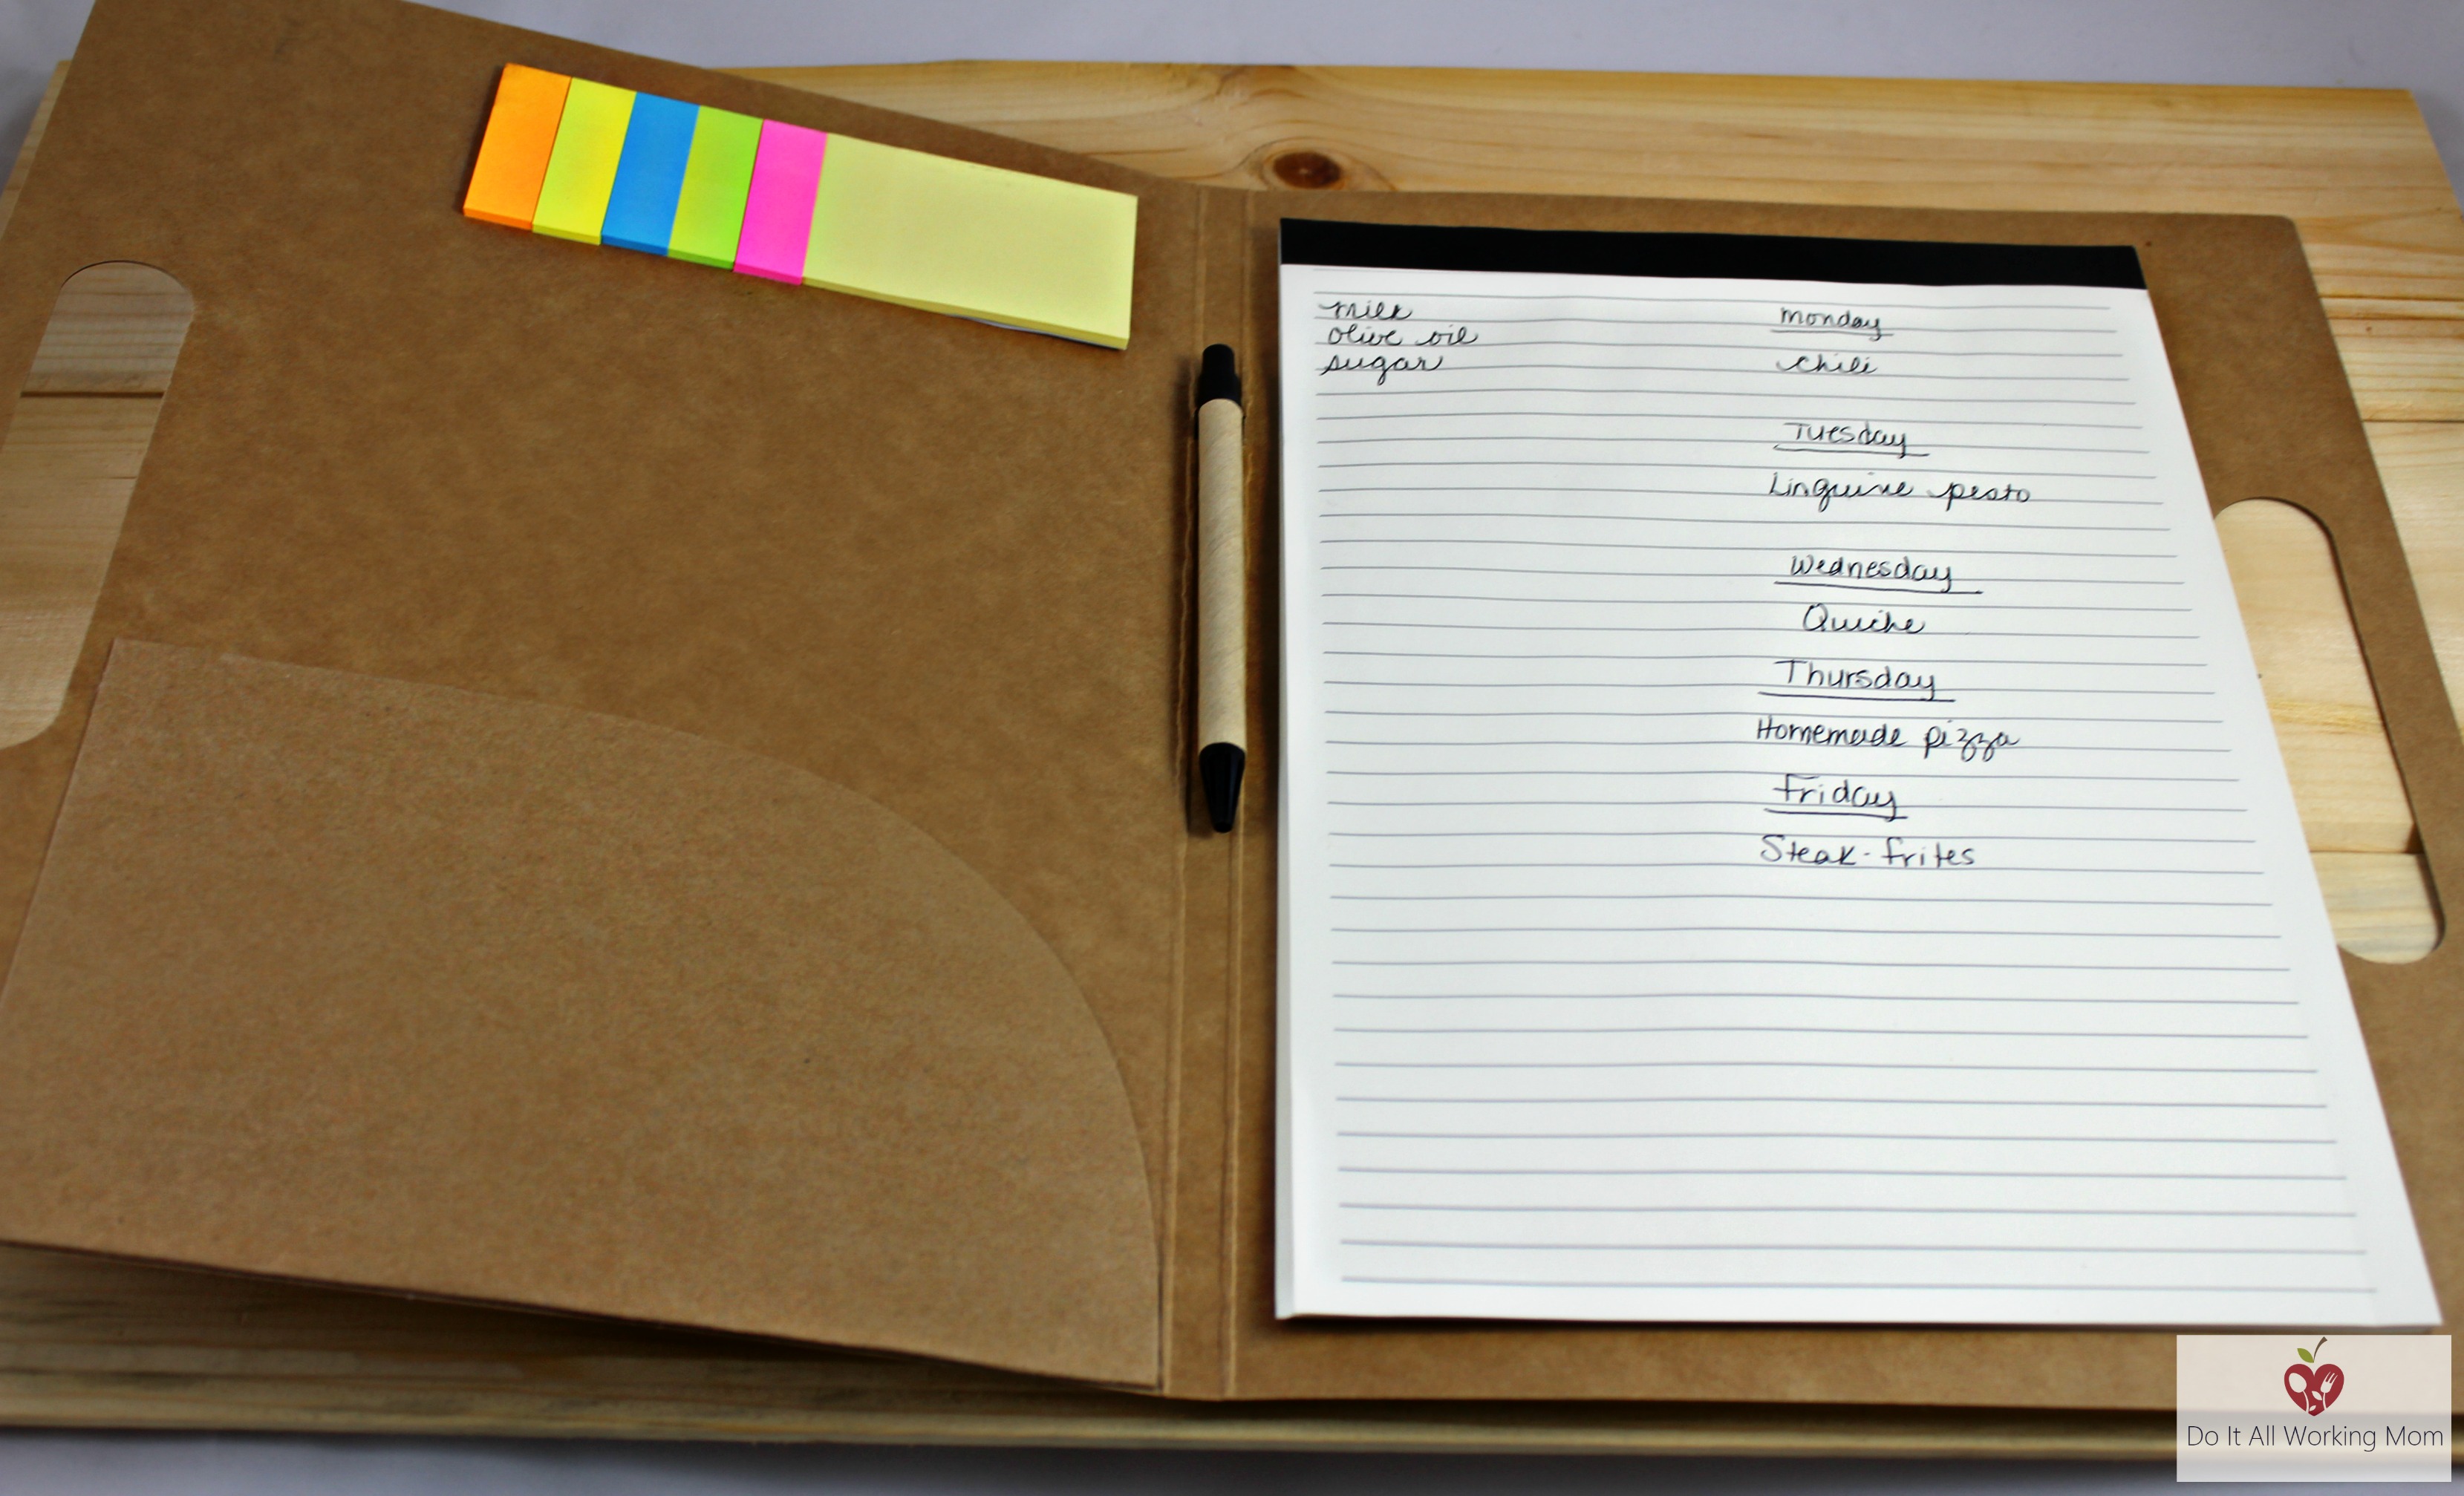 milk
olive oil
sugar
Monday
Chili
Tuesday
Linguine pesto
Wednesday
Quiche
Thursday
Homemade pizza
Friday
Steak-frites
Do It All Working Mom